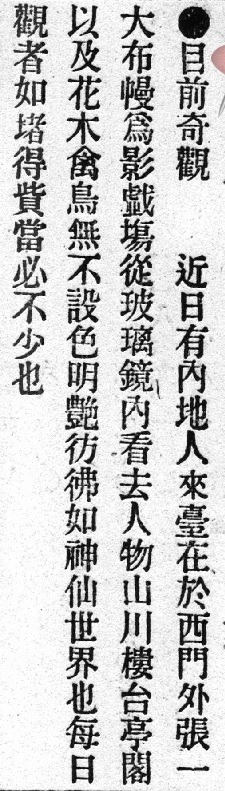 ●目前奇觀　　近日有內地人來臺在於西門外張一
大布幔爲影戯塲從玻璃鏡內看去人物山川樓台亭閣
以及花木禽鳥無不設色明艷彷彿如神仙世界也每日
觀者如堵得貲當必不少也